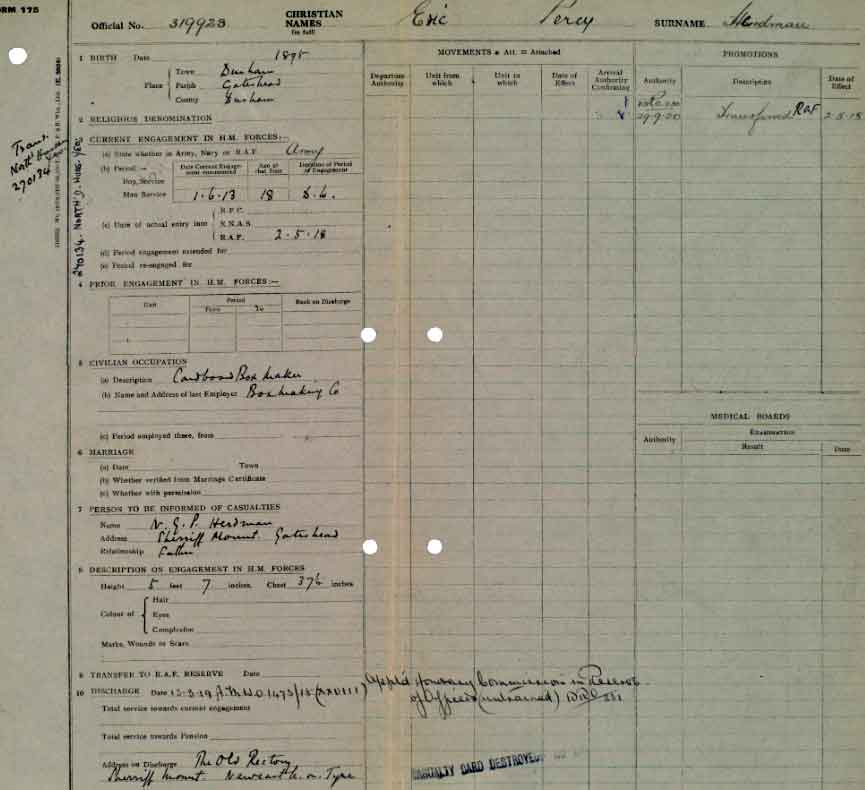 ORM 175
Official No. 319923 CHRISTIAN NAMES (in full) Eric Percy SURNAME Herdman
1 BIRTH Date 1895
Place Town Durham
Parish Gateshead
County Durham
2 RELIGIOUS DENOMINATION
CURRENT ENGAGEMENT IN H.M. FORCES:—
(a) State whether in Army, Navy or R.A.F. Army
(b) Period:— Date Current Engagement commenced Age at that time Duration of Period of Engagement
Boy Service
Man Service 1-6-13 18
(c) Date of actual entry into R.F.C.
R.N.A.S.
R.A.F. 2-5-18
(d) Period engagement extended for
(e) Period re-engaged for
4 PRIOR ENGAGEMENT IN H.M. FORCES:—
Unit Period Rank on Discharge
From To
5 CIVILIAN OCCUPATION
(a) Description Cardboard Box Maker
(b) Name and Address of last Employer Boxmaking Co
(c) Period employed there, from
6 MARRIAGE
(a) Date Town
(b) Whether verified from Marriage Certificate
(c) Whether with permission
7 PERSON TO BE INFORMED OF CASUALTIES
Name N. G. P. Herdman
Address Sherriff Mount. Gateshead
Relationship Father
8 DESCRIPTION ON ENGAGEMENT IN H.M. FORCES
Height 5 feet 7 inches. Chest 37½ inches
Colour of Hair
Eyes
Complexion
Marks, Wounds or Scars
9 TRANSFER TO R.A.F. RESERVE Date
10 DISCHARGE Date A.M.W.O. 1473/18 (XXVIII)
Total service towards current engagement
Total service towards Pension
Address on Discharge The Old Rectory
Sherriff Mount. Newcastle on Tyne
Trans.
North
270134
270134. NORTH'D. HUSS. YEO.
MOVEMENTS * Att. = Attached
Departure Authority Unit from which Unit to which Date of Effect Arrival Authority Confirming
PROMOTIONS
Authority Description Date of Effect
29-9-20 Transferred RAF 2-5-18
MEDICAL BOARDS
Authority EXAMINATION
Result Date
App'td Honorary Commission in
of Officer (untrained)
CASUALTY CARD DESTROYED